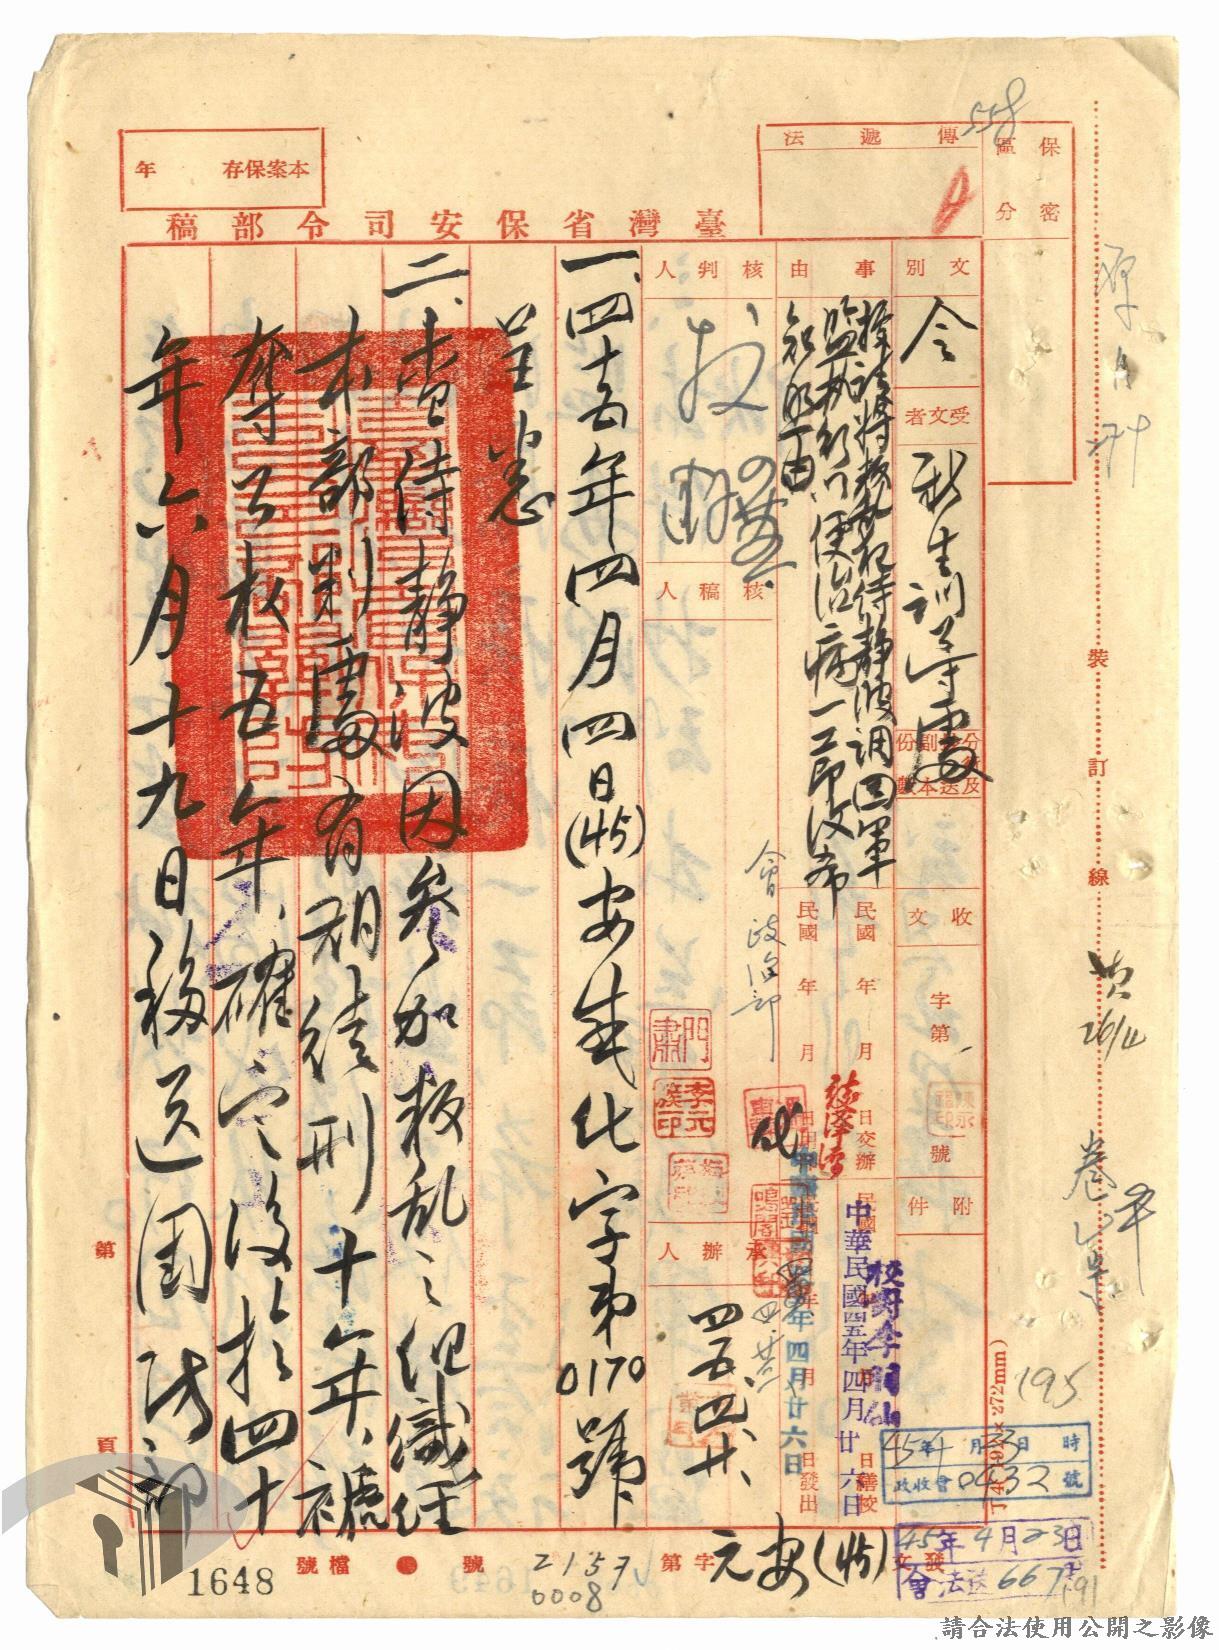 558
保密
區分
傳遞法
本案保存 年
臺灣省保安司令部稿
文別
令
受文者
新生訓導處
分行及副本送份數
事由
據請將叛亂犯侍靜波調回軍
監執行以便治病一節復希
知照由
收文 字第 號
附件
民國 年 月 日交辦
民國 年 月 日繕校
中華民國四五年四月廿六日
民國 年 月 日發出
四月廿六日
核判人
核稿人
會政治部
承辦人
四五四廿
一、四十五年四月四日(45)安感化字第0170號
呈悉
二、查侍靜波因參加叛亂之組織經
本部判處有期徒刑十年、褫
奪公權五年、確定後於四十
年六月十九日移送國防部
裝訂線
195
45年4月23日 時
政收會0432號
45年4月23日
會法送667
發文
(45)安元字第 號
2157
0008
檔號
1648
第 頁
請合法使用公開之影像